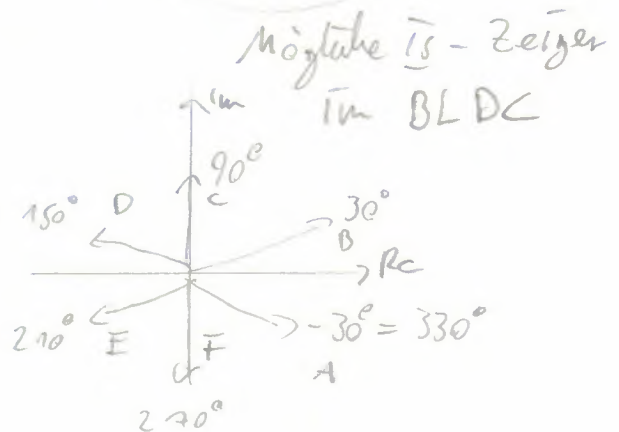 Mögliche Is - Zeiger
im BLDC
Im
90°
C
150° D
30°
B
Re
210° E
F
-30° = 330°
A
270°